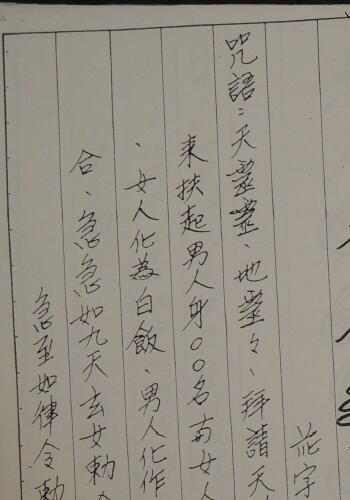 花字
咒語：天靈靈、地靈々、拜請天
来扶起男人身〇〇名 女人
、女人化為白飯、男人化作
合、急急如九天玄女勅令
急至如律令勅